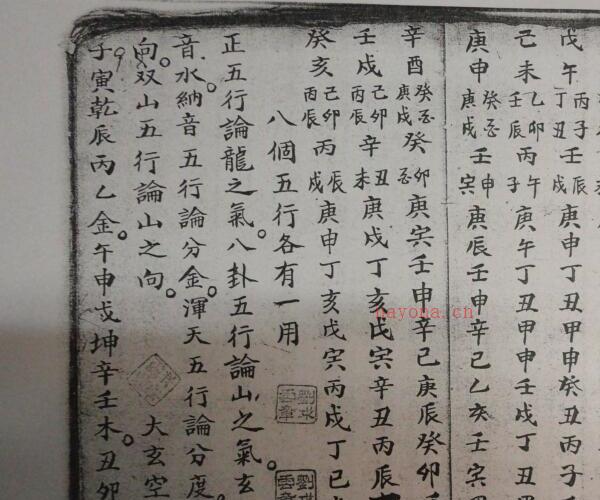 戊午 丙子 丁丑 壬 辰 戌 庚申丁丑甲申癸丑丙子
己未 乙卯 壬辰 丙 午 子 庚午丁丑甲申壬戌丁丑
庚申 癸亥 庚戌 壬 申 寅 庚辰壬申辛巳乙亥壬寅
辛酉 癸亥 庚戌 癸 卯 亥 庚寅壬申辛巳庚辰癸卯
壬戌 己卯 丙辰 辛 丑 未 庚戌丁亥戊寅辛丑丙辰
癸亥 己卯 丙辰 丙 辰 戌 庚申丁亥戊寅丙戌丁巳
八個五行各有一用
正五行論龍之氣。八卦五行論山之氣。玄
音水。納音五行論分金。渾天五行論分度。
向。双山五行論山之向。 大玄空
子寅乾辰丙乙金。午申戌坤辛壬木。丑卯
nayona.cn